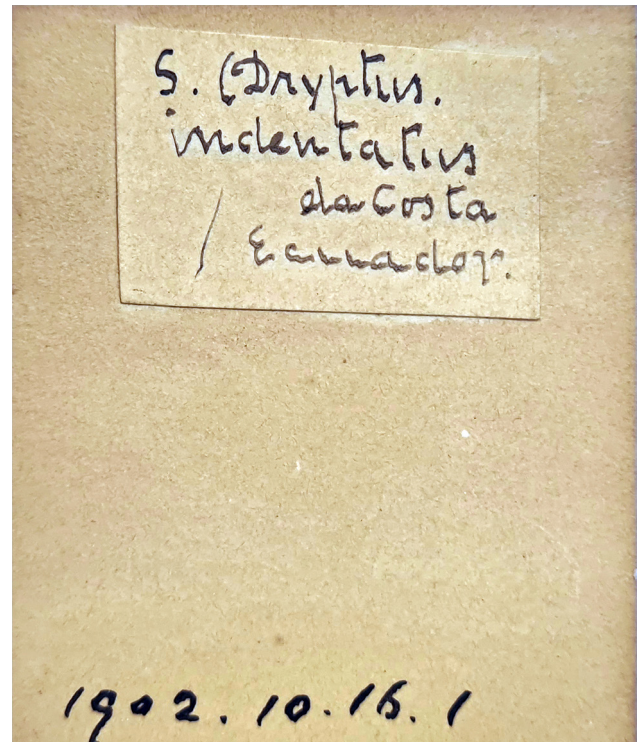 S. (Dryptus.
indentatus
da Costa
/ Ecuador.
1902.10.16.1